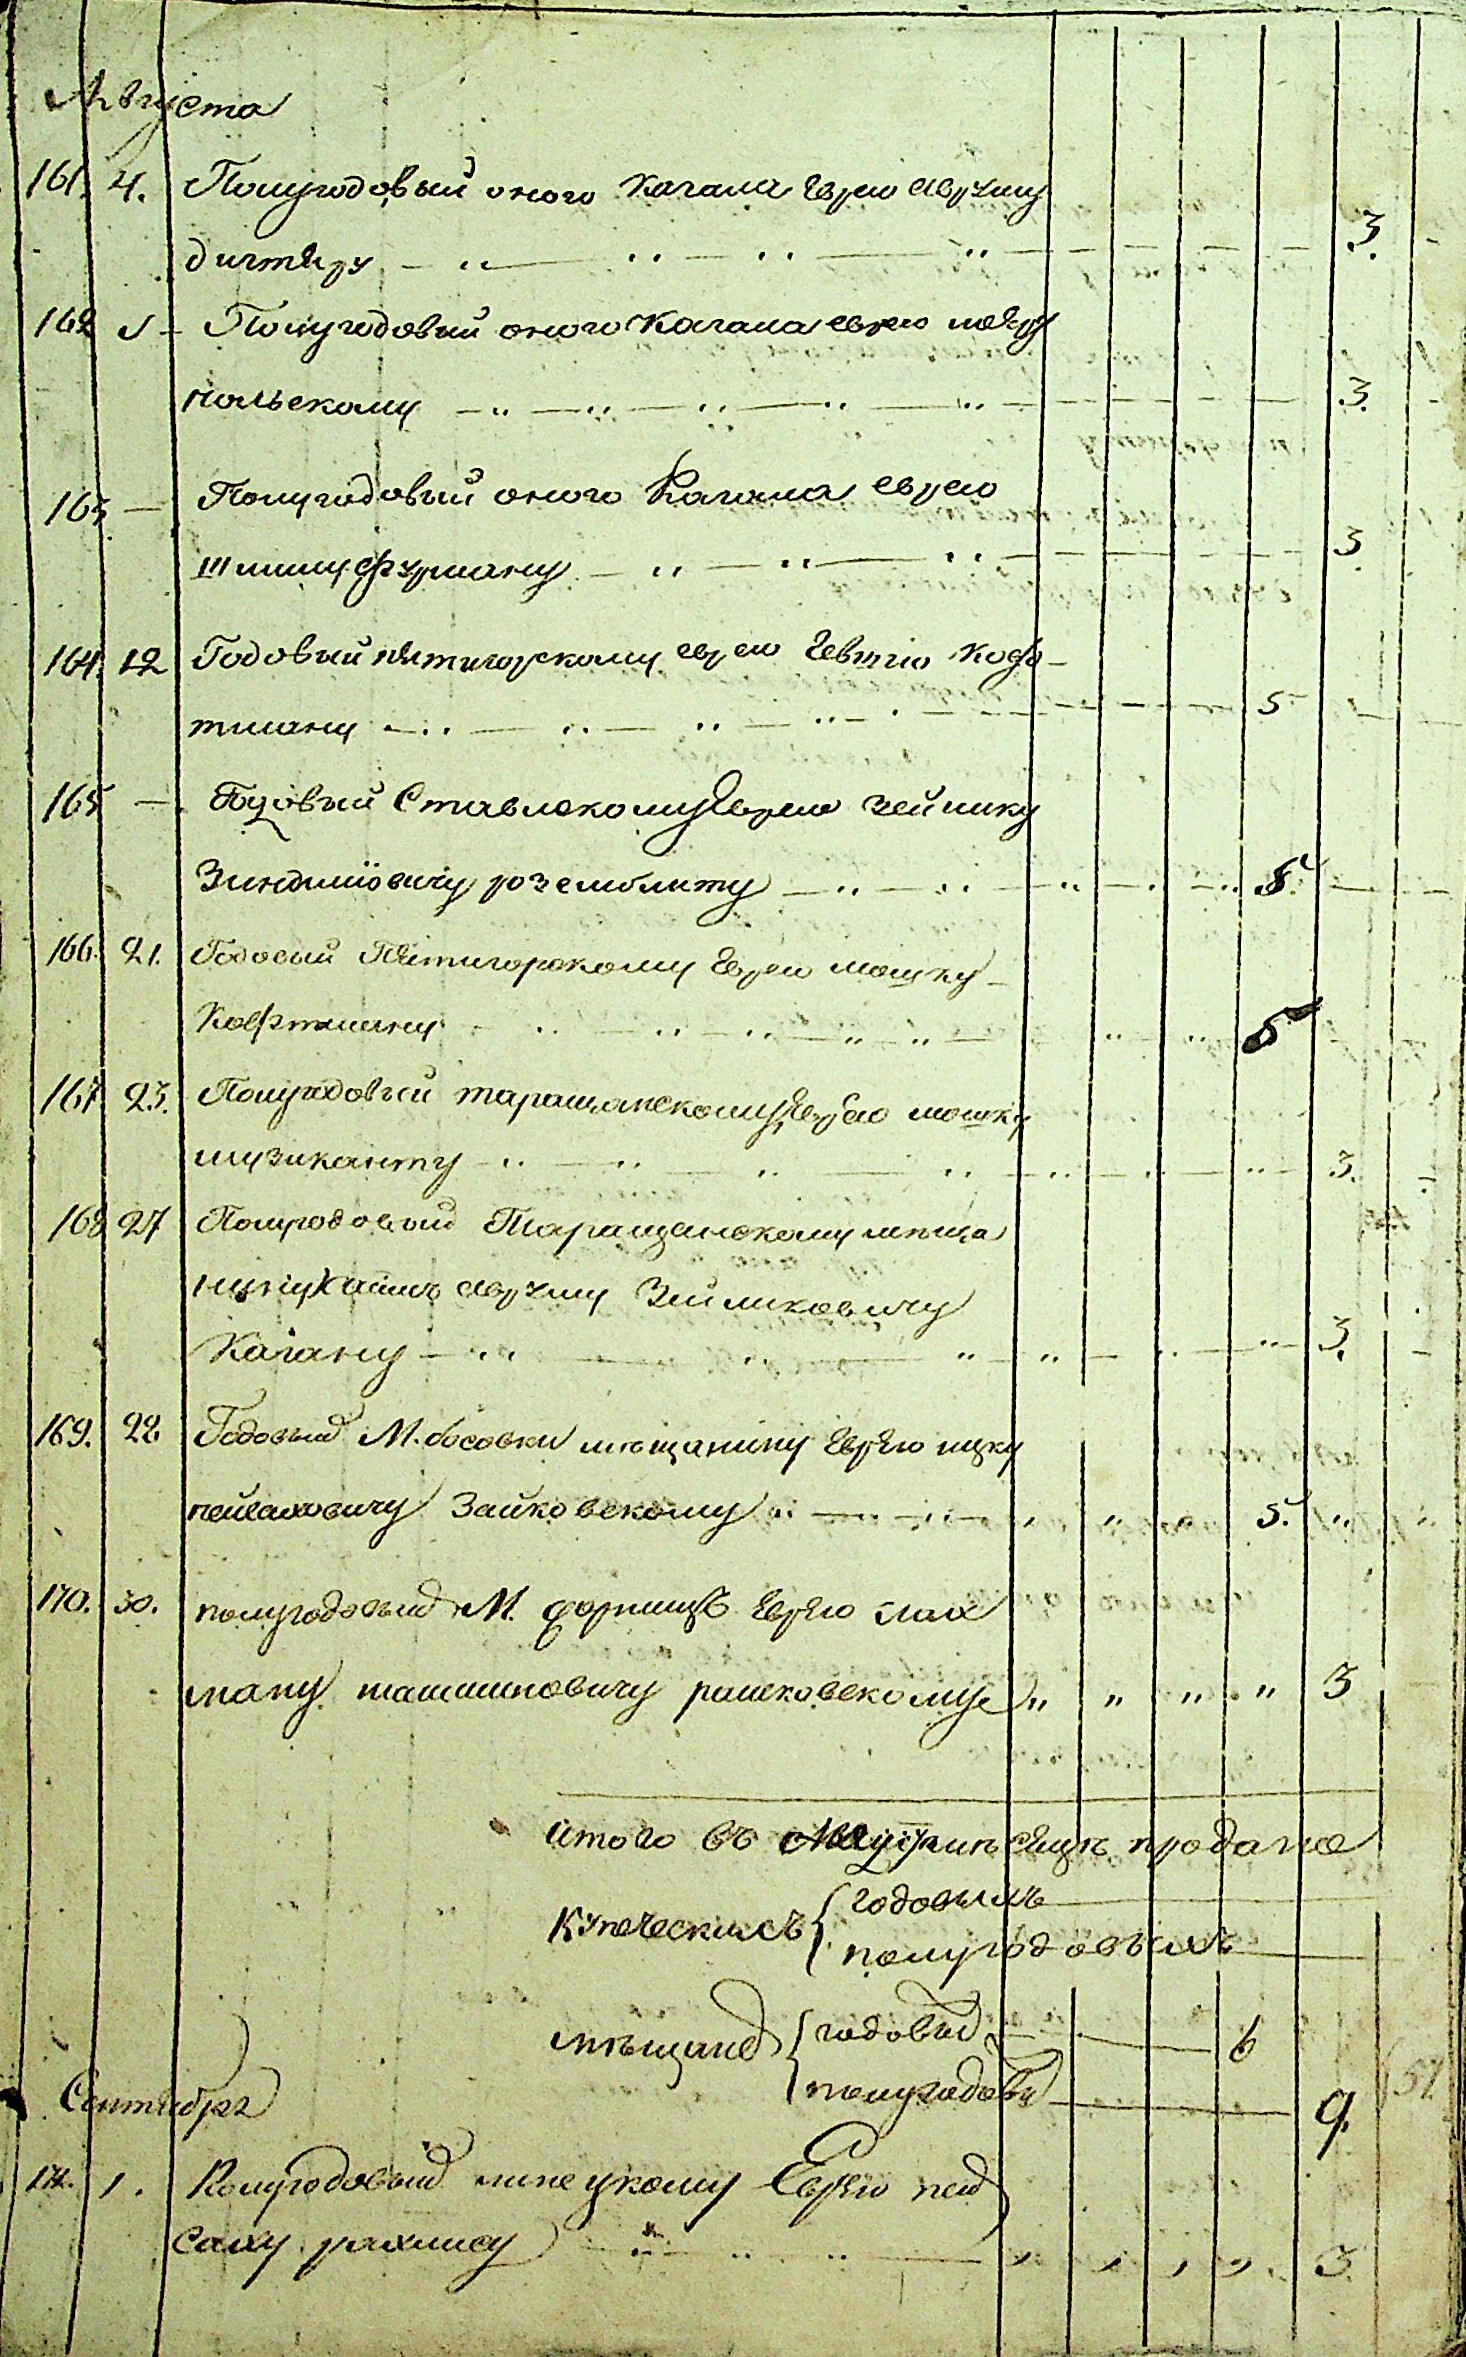 Августа
161. 4. Полугодовый оного Кагала Еврею Авруму
дихтяру 3.
162 5 Полугодовый оного Кагала еврею
польскому 3.
163 — Полугодовый оного Кагала еврею
Шлиому Фурману 3
164. 12 Годовый пятигорскому еврею Кофъ-
тману 5
165 — Годовый Ставлскому Еврею Зейлику
Зинделиовичу роземблиту 5.
166. 21. Годовый Пятигорскому Еврею мошку
Кофтману 5
167 23. Полугодовый таращанскому Еврею мошку
музиканту 3.
168 27 Полугодовый Таращанскому мѣща
нину Хаимъ Авруму Зейликовичу
Кагану 3.
169. 28 Годовый М. босовки мѣщанину Еврею ицку
пейсаховичу Зайковскому 5.
170. 30. полугодовый М. Еврею
рашковскому 3
Итого въ Августѣ мѣсяцѣ продано
Купеческихъ { годовыхъ
полугодовыхъ
мѣщанс { годовых 6
полугодовы 9.
57
Сентября
171. 1. Полугодовый липецкому Еврею пей
саху рахлису 3.